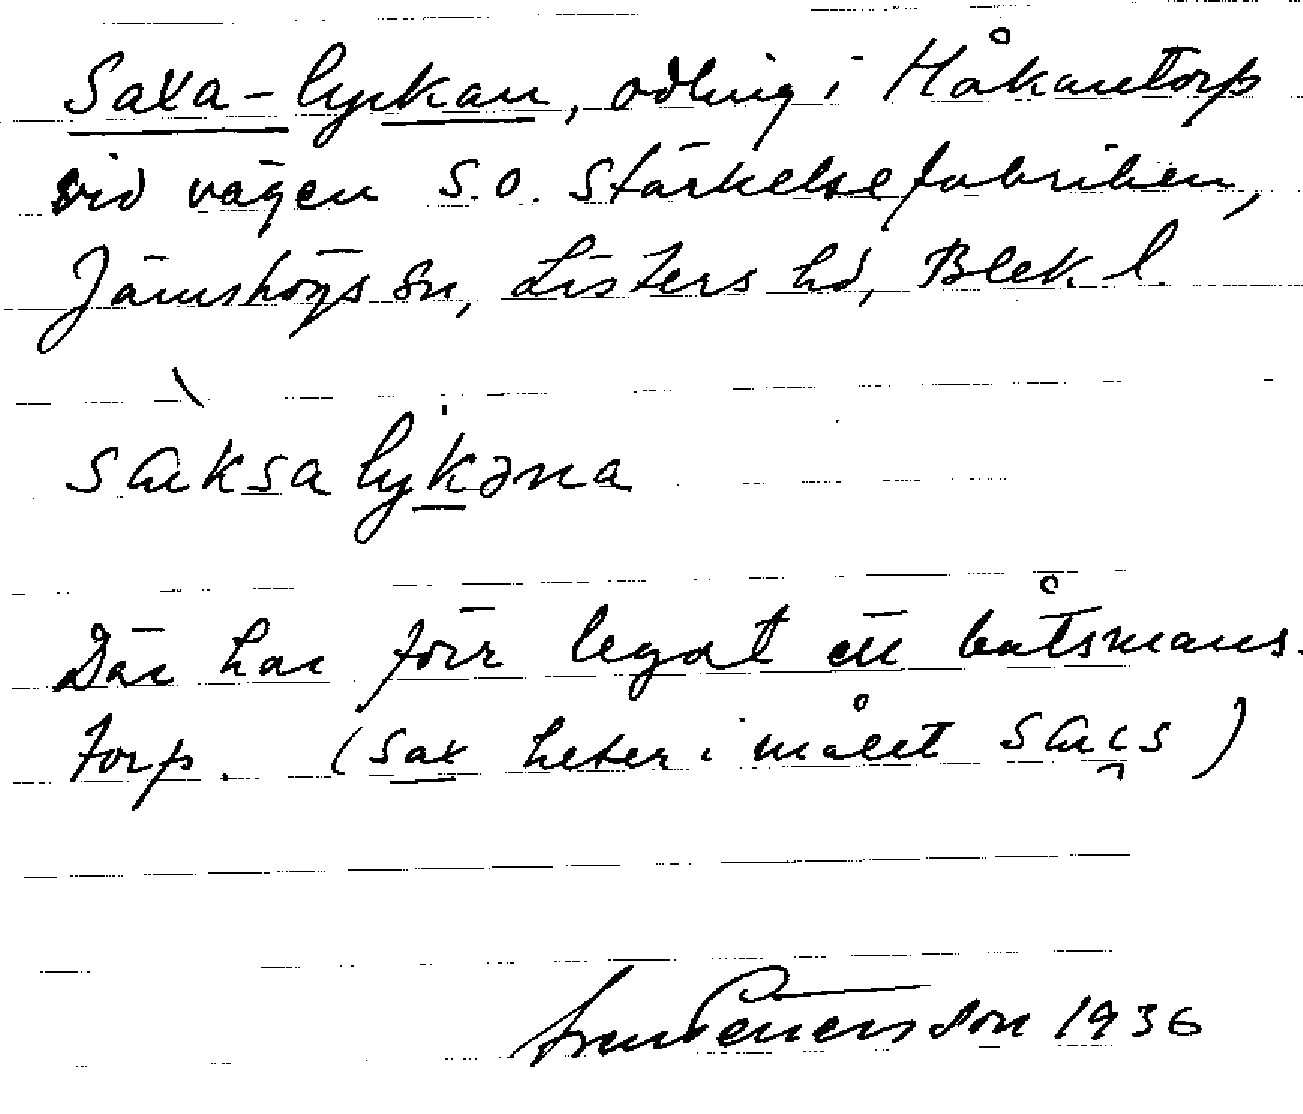 Saxa-lyckan, odling i Håkantorp
vid vägen S.O. Stärkelsefabriken,
Jämshögs sn, Listers hd, Blek l.
sɑksalykəna
Där har förr legat ett båtsmans-
torp. (Sax heter i målet sɑcs)
Sven Pettersson 1936